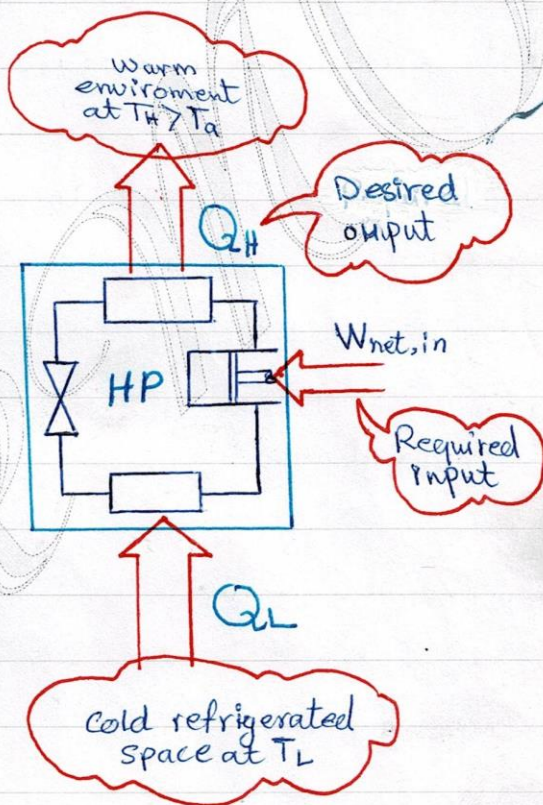 warm
enviroment
at TH > Ta
Desired
output
QH
Wnet,in
HP
Required
input
QL
cold refrigerated
space at TL